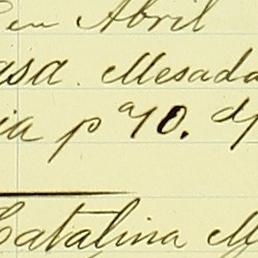 en Abril
asa. Mesada
ia pª 70. d
Catalina M